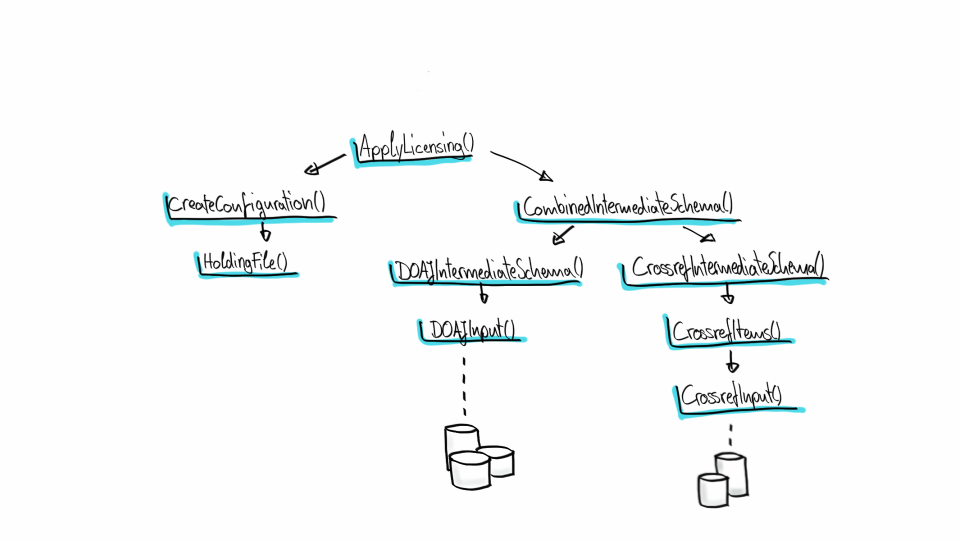 ApplyLicensing()
CreateConfiguration()
CombinedIntermediateSchema()
HoldingFile()
DOAJIntermediateSchema()
CrossrefIntermediateSchema()
DOAJInput()
CrossrefItems()
CrossrefInput()